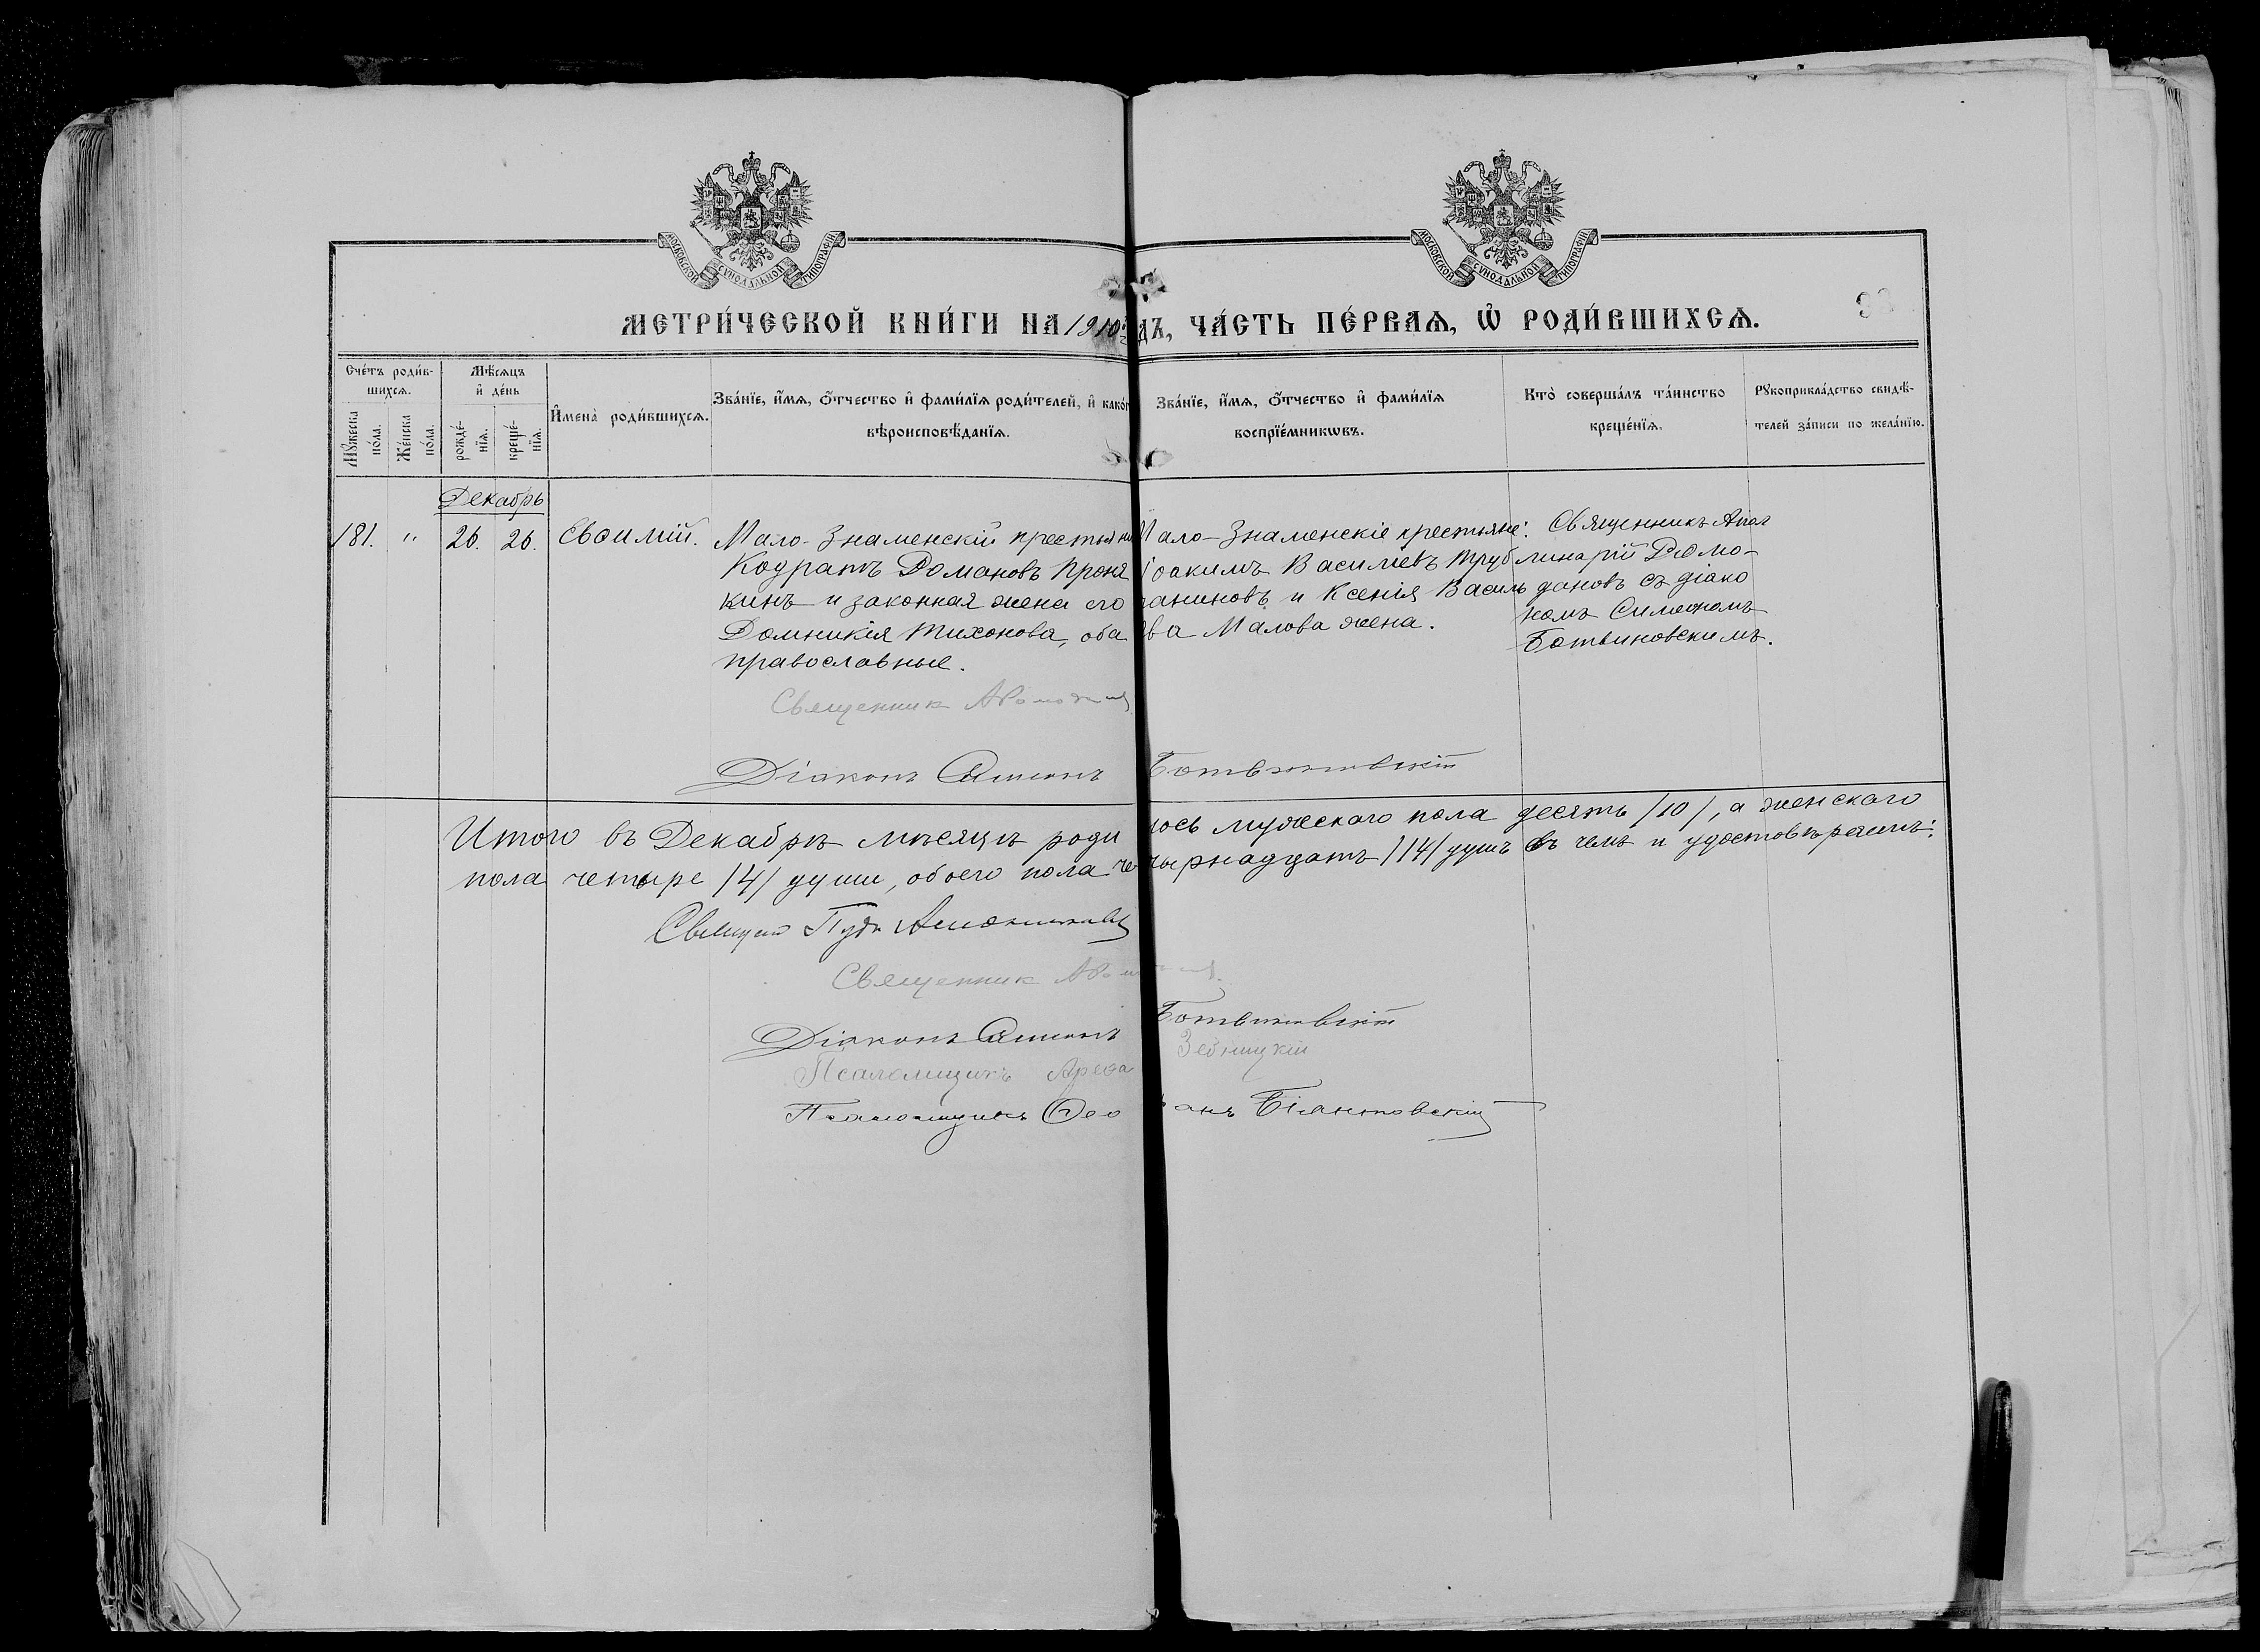 МОСКОВСКОЙ СѴНОДАЛЬНОЙ ТИПОГРАФІИ
МОСКОВСКОЙ СѴНОДАЛЬНОЙ ТИПОГРАФІИ
МЕТРИ́ЧЕСКОЙ КНИ́ГИ НА 1910 ГОДЪ, ЧА́СТЬ ПЕ́РВАѦ, Ѡ҆ РОДИ́ВШИХСѦ.
93
Сче́тъ роди́в-
шихсѧ.
Мꙋ́жеска
по́ла.
Же́нска
по́ла.
Мѣ́сѧцъ
и҆ де́нь
рожде́-
нїѧ.
креще́-
нїѧ.
И҆мена̀ роди́вшихсѧ.
Зва́нїе, и҆́мѧ, ѻ҆́тчество и҆ фами́лїѧ роди́телей, и҆ како́гѡ
вѣроисповѣ́данїѧ.
Зва́нїе, и҆́мѧ, ѻ҆́тчество и҆ фами́лїѧ
воспрїе́мникѡвъ.
Кто̀ соверша́лъ та́инство
креще́нїѧ.
Рꙋкоприкла́дство свидѣ́-
телей за́писи по жела́нїю.
Декабрь
181. " 26. 26. Евѳимій.
Мало-Знаменскій крестьянинъ
Кодратъ Романовъ Проня
кинъ и законная жена его
Домникія Тихонова, оба
православные.
Мало-Знаменскіе крестьяне:
Іоакимъ Василіевъ Труб
чаниновъ и Ксенія Василь
ева Малова жена.
Священникъ Апол
линарій Рѳмо-
дановъ съ діако
номъ Симеономъ
Ботвиновскимъ.
Священникъ А
Діаконъ Симеонъ Ботвиновскій
Итого въ Декабрѣ мѣсяцѣ родилось мужескаго пола десять /10/, а женскаго
пола четыре /4/ души, обоего пола четырнадцать /14/ душъ въ чемъ и удостовѣряемъ:
Священ
Священникъ А
Діаконъ Симеонъ Ботвиновскій
Псаломщикъ Арефа
Псаломщикъ Ѳеофанъ